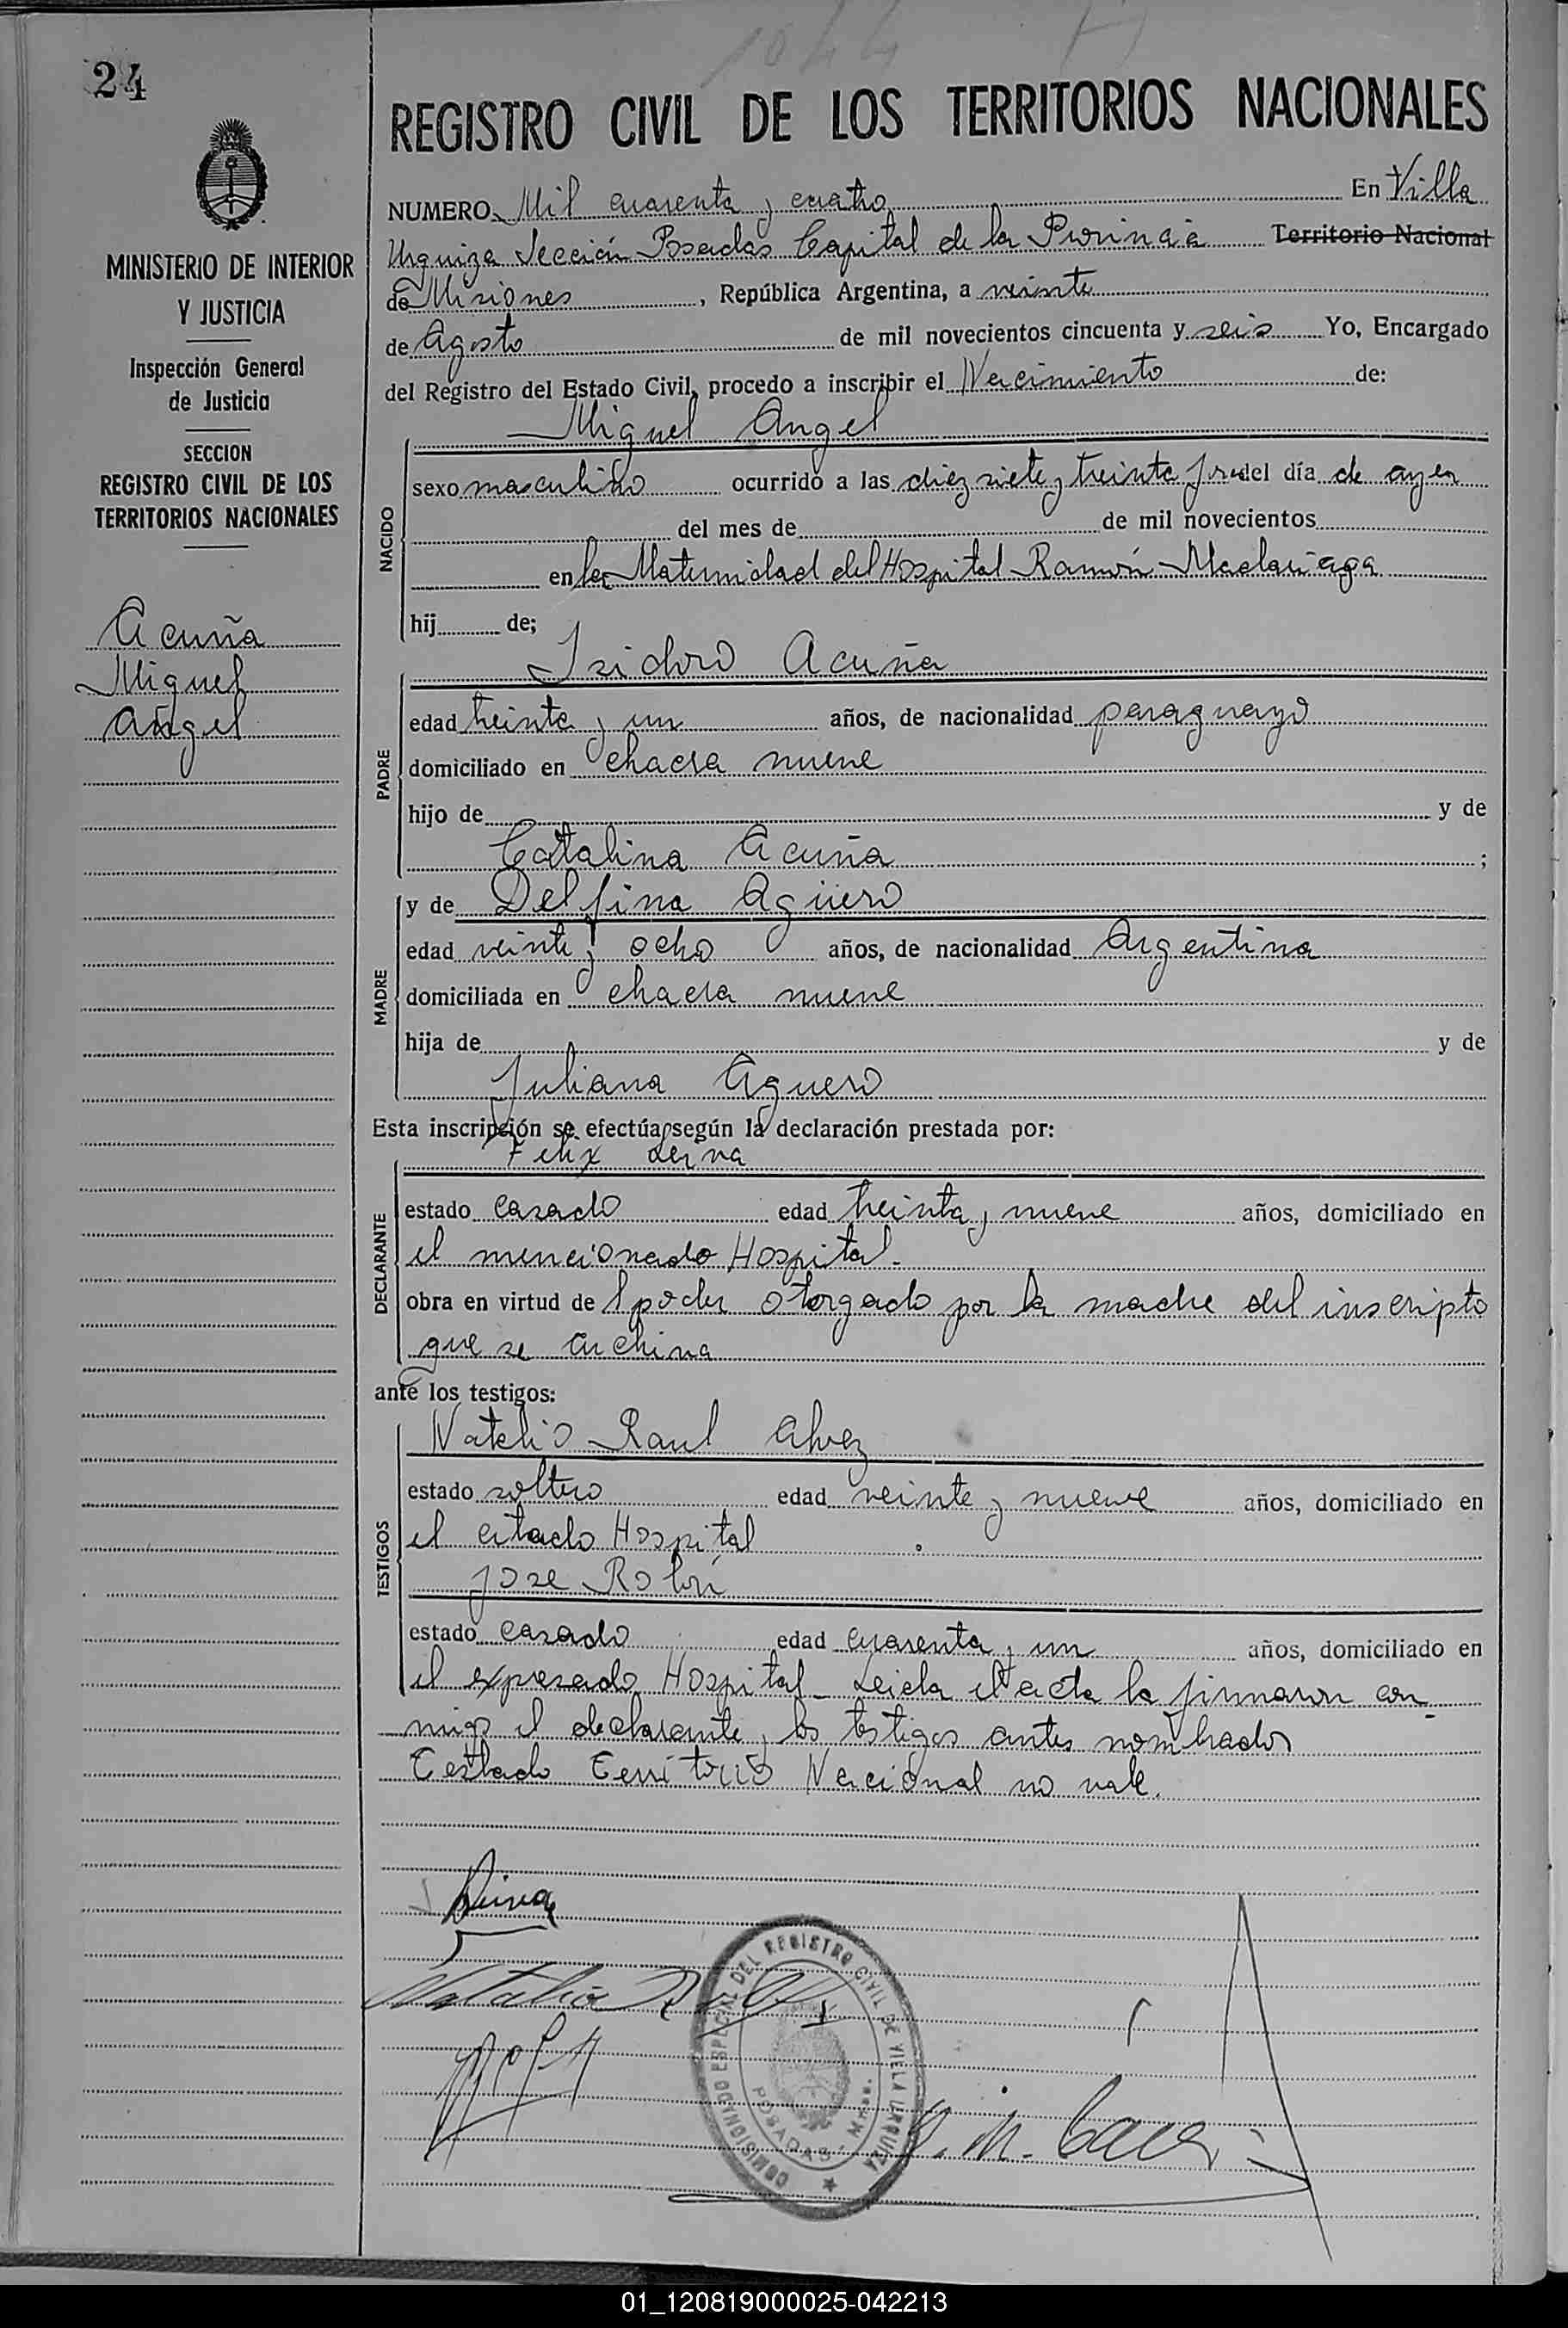 1044
24
REGISTRO CIVIL DE LOS TERRITORIOS NACIONALES
MINISTERIO DE INTERIOR
Y JUSTICIA
Inspección General
de Justicia
SECCION
REGISTRO CIVIL DE LOS
TERRITORIOS NACIONALES
Acuña
Miguel
Angel
NUMERO Mil cuarenta y cuatro En Villa
Urquiza Sección Posadas Capital de la Provincia Territorio Nacional
de Misiones, República Argentina, a veinte
de Agosto de mil novecientos cincuenta y seis Yo, Encargado
del Registro del Estado Civil, procedo a inscribir el Nacimiento de:
Miguel Angel
NACIDO
sexo masculino ocurrido a las diez siete y treinta del día de ayer
del mes de de mil novecientos
en la Maternidad del Hospital Ramón Madariaga
hij de;
PADRE
Isidoro Acuña
edad treinta y un años, de nacionalidad paraguayo
domiciliado en chacra nueve
hijo de y de
Catalina Acuña ;
MADRE
y de Delfina Agüero
edad veinte y ocho años, de nacionalidad Argentina
domiciliada en chacra nueve
hija de y de
Juliana Aguero
Esta inscripción se efectúa según la declaración prestada por:
DECLARANTE
Felix Leiva
estado casado edad treinta y nueve años, domiciliado en
el mencionado Hospital.
obra en virtud de l poder otorgado por la madre del inscripto
que se archiva
ante los testigos:
TESTIGOS
Natalio Raul Alvez
estado soltero edad veinte y nueve años, domiciliado en
el citado Hospital
Jose Rolón
estado casado edad cuarenta y un años, domiciliado en
el expresado Hospital_ Leida el acta la firmaron con
migo el declarante y los testigos antes nombrados
Testado Territorio Nacional no vale.
Leiva
Natalio
COMISIONADO ESPECIAL DEL REGISTRO CIVIL DE VILLA URQUIZA
POSADAS, Mnes.
01_120819000025-042213